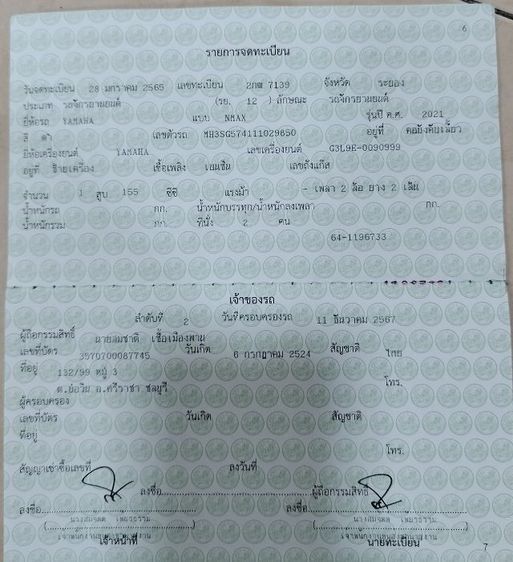 6
รายการจดทะเบียน
วันจดทะเบียน 28 มกราคม 2565 เลขทะเบียน 2กฬ 7139 จังหวัด ระยอง
ประเภท รถจักรยานยนต์ (รย. 12 ) ลักษณะ รถจักรยานยนต์
ยี่ห้อรถ YAMAHA แบบ NMAX รุ่นปี ค.ศ. 2021
สี ดำ เลขตัวรถ MH3SG574111029850 อยู่ที่ คอบังคับเลี้ยว
ยี่ห้อเครื่องยนต์ YAMAHA เลขเครื่องยนต์ G3L9E-0090999
อยู่ที่ ซ้ายเครื่อง เชื้อเพลิง เบนซิน เลขถังแก๊ส
จำนวน 1 สูบ 155 ซีซี แรงม้า - เพลา 2 ล้อ ยาง 2 เส้น
น้ำหนักรถ กก. น้ำหนักบรรทุก/น้ำหนักลงเพลา กก.
น้ำหนักรวม กก. ที่นั่ง 2 คน
64-1196733
เจ้าของรถ
ลำดับที่ 2 วันที่ครอบครองรถ 11 ธันวาคม 2567
ผู้ถือกรรมสิทธิ์ นายสมชาติ เชื้อเมืองพาน
เลขที่บัตร 3570700087745 วันเกิด 6 กรกฎาคม 2524 สัญชาติ ไทย
ที่อยู่ 132/99 หมู่ 3
ต.บ่อวิน อ.ศรีราชา ชลบุรี โทร.
ผู้ครอบครอง
เลขที่บัตร วันเกิด สัญชาติ
ที่อยู่
โทร.
สัญญาเช่าซื้อเลขที่ ลงวันที่
ลงชื่อ ผู้ถือกรรมสิทธิ์
ลงชื่อ ลงชื่อ
เจ้าหน้าที่ นายทะเบียน
7